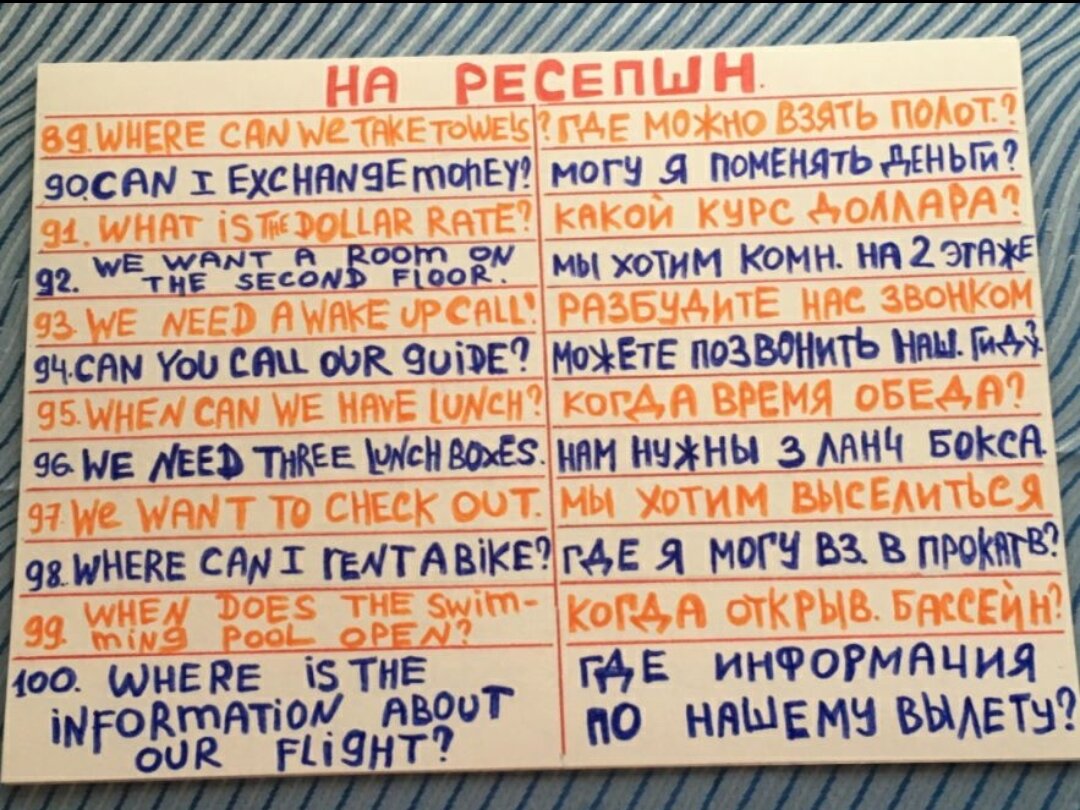 НА РЕСЕПШН.
89. WHERE CAN WE TAKE TOWELS? ГДЕ МОЖНО ВЗЯТЬ ПОЛОТ.?
90. CAN I EXCHANGE MONEY? МОГУ Я ПОМЕНЯТЬ ДЕНЬГИ?
91. WHAT IS THE DOLLAR RATE? КАКОЙ КУРС ДОЛЛАРА?
92. WE WANT A ROOM ON
THE SECOND FLOOR. МЫ ХОТИМ КОМН. НА 2 ЭТАЖЕ
93. WE NEED A WAKE UP CALL! РАЗБУДИТЕ НАС ЗВОНКОМ
94. CAN YOU CALL OUR GUIDE? МОЖЕТЕ ПОЗВОНИТЬ НАШ. ГИДУ?
95. WHEN CAN WE HAVE LUNCH? КОГДА ВРЕМЯ ОБЕДА?
96 WE NEED THREE LUNCH BOXES. НАМ НУЖНЫ 3 ЛАНЧ БОКСА.
97. WE WANT TO CHECK OUT. МЫ ХОТИМ ВЫСЕЛИТЬСЯ
98. WHERE CAN I RENT A BIKE? ГДЕ Я МОГУ ВЗ. В ПРОКАТ В?
99. WHEN DOES THE SWIM-
MING POOL OPEN? КОГДА ОТКРЫВ. БАССЕЙН?
100. WHERE IS THE
INFORMATION ABOUT
OUR FLIGHT?
ГДЕ ИНФОРМАЦИЯ
ПО НАШЕМУ ВЫЛЕТУ?